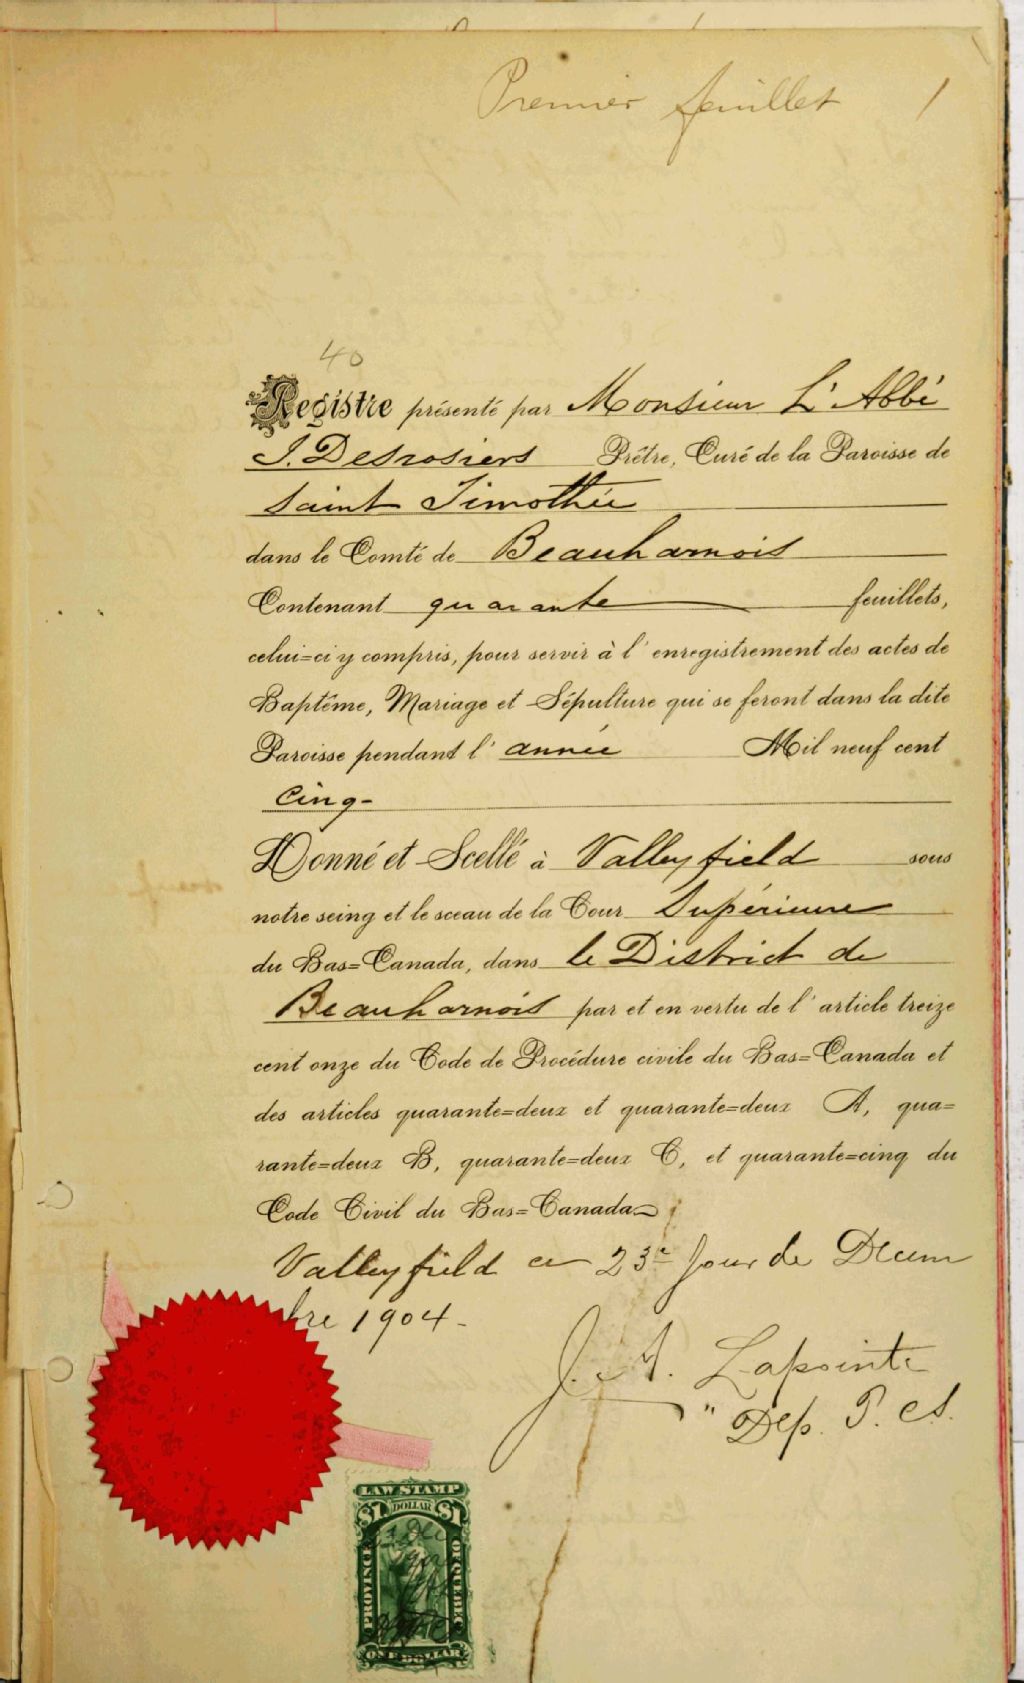 Premier feuillet 1
40
Registre présenté par Monsieur L'Abbé
J. Desrosiers Prêtre, Curé de la Paroisse de
Saint Timothée
dans le Comté de Beauharnois
Contenant quarante feuillets,
celui=ci y compris, pour servir à l'enregistrement des actes de
Baptême, Mariage et Sépulture qui se feront dans la dite
Paroisse pendant l'année Mil neuf cent
Cinq-
Donné et Scellé à Valleyfield sous
notre seing et le sceau de la Cour Supérieure
du Bas=Canada, dans le District de
Beauharnois par et en vertu de l'article treize
cent onze du Code de Procédure civile du Bas=Canada et
des articles quarante=deux et quarante=deux A, qua=
rante=deux B, quarante=deux C, et quarante=cinq du
Code Civil du Bas=Canada
Valleyfield ce 23e Jour de Decem
bre 1904-
J. A. Lapointe
" Dep. P. C. S.
LAW STAMP
$1 DOLLAR $1
PROVINCE
OF QUEBEC
ONE DOLLAR